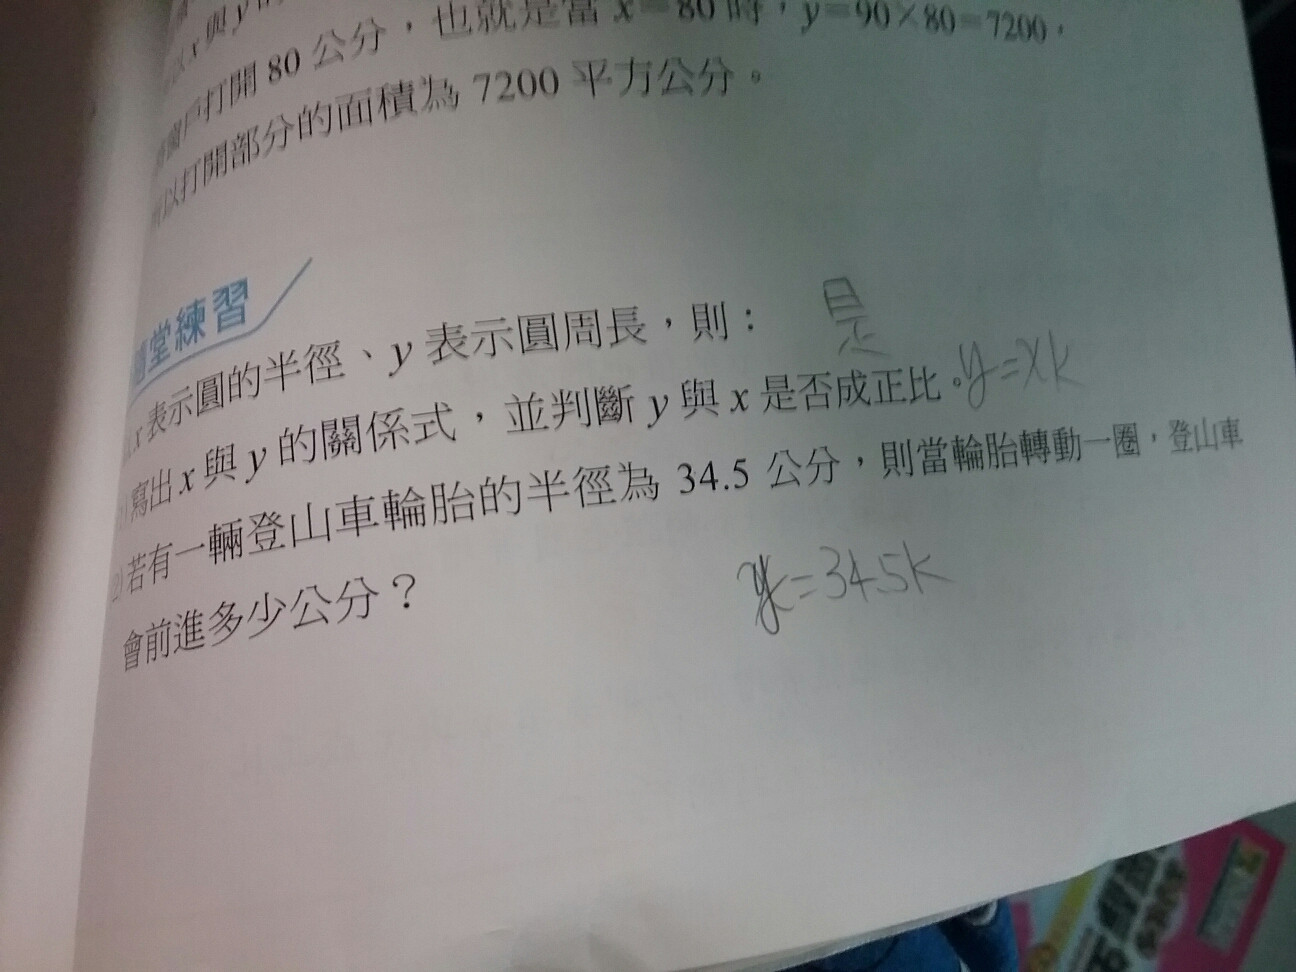 x與y的
窗戶打開 80 公分，也就是當 x＝80 時，y＝90×80＝7200，
所以打開部分的面積為 7200 平方公分。
隨堂練習
x 表示圓的半徑、y 表示圓周長，則：
是
寫出 x 與 y 的關係式，並判斷 y 與 x 是否成正比。y=xk
若有一輛登山車輪胎的半徑為 34.5 公分，則當輪胎轉動一圈，登山車
會前進多少公分？
=34.5k